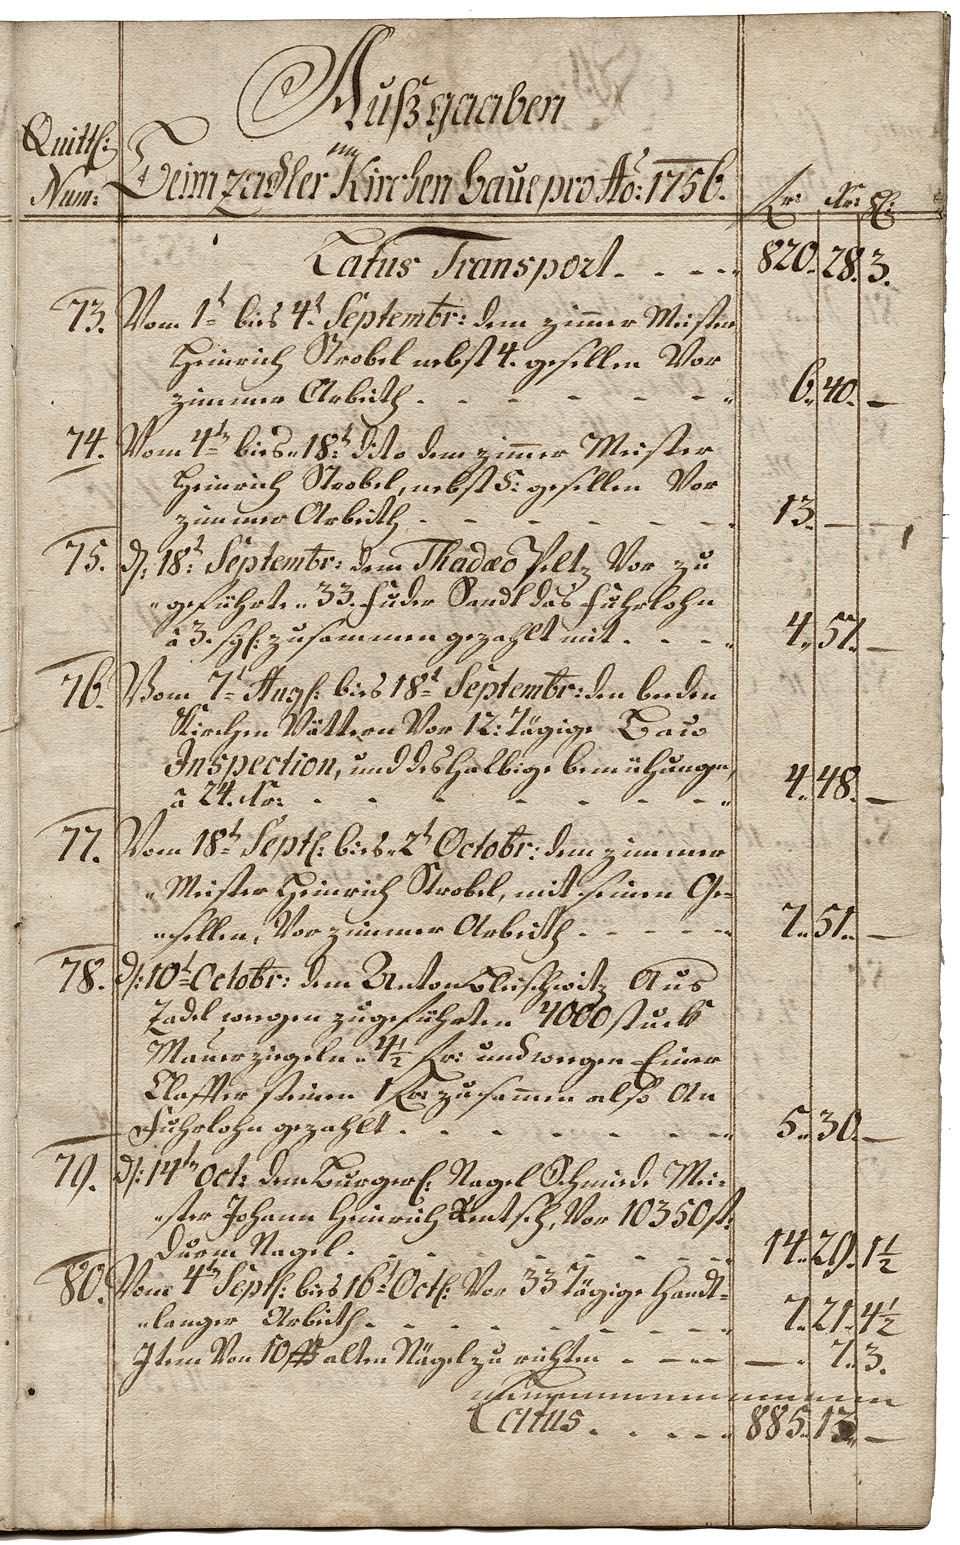 Außgaaben
Quitt:
im
Num: Beim Zadler Kirchen baue pro Aõ: 1756.
Rr: Xr: hl:
Latus Transport. . . - - " 820. 28. 3.
73. Vom 1t bies 4t Septembr: dem zimmer Meister
Heinrich Strobel nebst 4. gesellen Vor
zimmer Arbeith . - - - - - " 6. 40. —
74. Vom 4t bies " 18t dito dem zimmer Meister
Heinrich Strobel, nebst 5: gesellen Vor
zimmer Arbeith . - - - - - . 13. — —
75. d: 18t Septembr: dem Thadæo Peltz Vor zu
" geführte " 33. fuder Sandt das fuhrlohn
â 3. sgl: zusammen gezahlt mit . - - - " 4. 57. —
76. Vom 7t Aug: bies 18t Septembr: den beeden
Kirchen Vättern Vor 12: Tägige Bau
Inspection, und deshalbige bemühungen,
â 24. Xr: . - - - - - - " 4. 48. —
77. Vom 18t Sept: bies " 2t Octobr: dem zimmer
" Meister Heinrich Strobel, mit seinen Ge-
" sellen, Vor zimmer Arbeith - - - - - " 7. 51. —
78. d: 10t Octobr: dem Anton Aus
Zadel wegen zugeführten 4000 stuck
Mauerziegeln " 4½ Rr: und wegen Einer
Claffter steinen 1 Rr: zusammen also An
Fuhrlohn gezahlt . - - - - - - " 5. 30. —
79. d: 14t Oct: dem Burgerl: Nagel Schmiede Mei:
" ster Johann Heinrich Rentsch, Vor 10350 st:
Nagel . - - - - - - - 14. 29. 1½
80. Vom 4t Sept: bies 16t Oct: Vor 33 Tägige Handt=
" langer Arbeith . - - - - - - " 7. 21. 4½
Item Von 10 ℔ alten Nägel zu richten - - - — . 7. 3.
Latus . . - - - " 885. 13. —